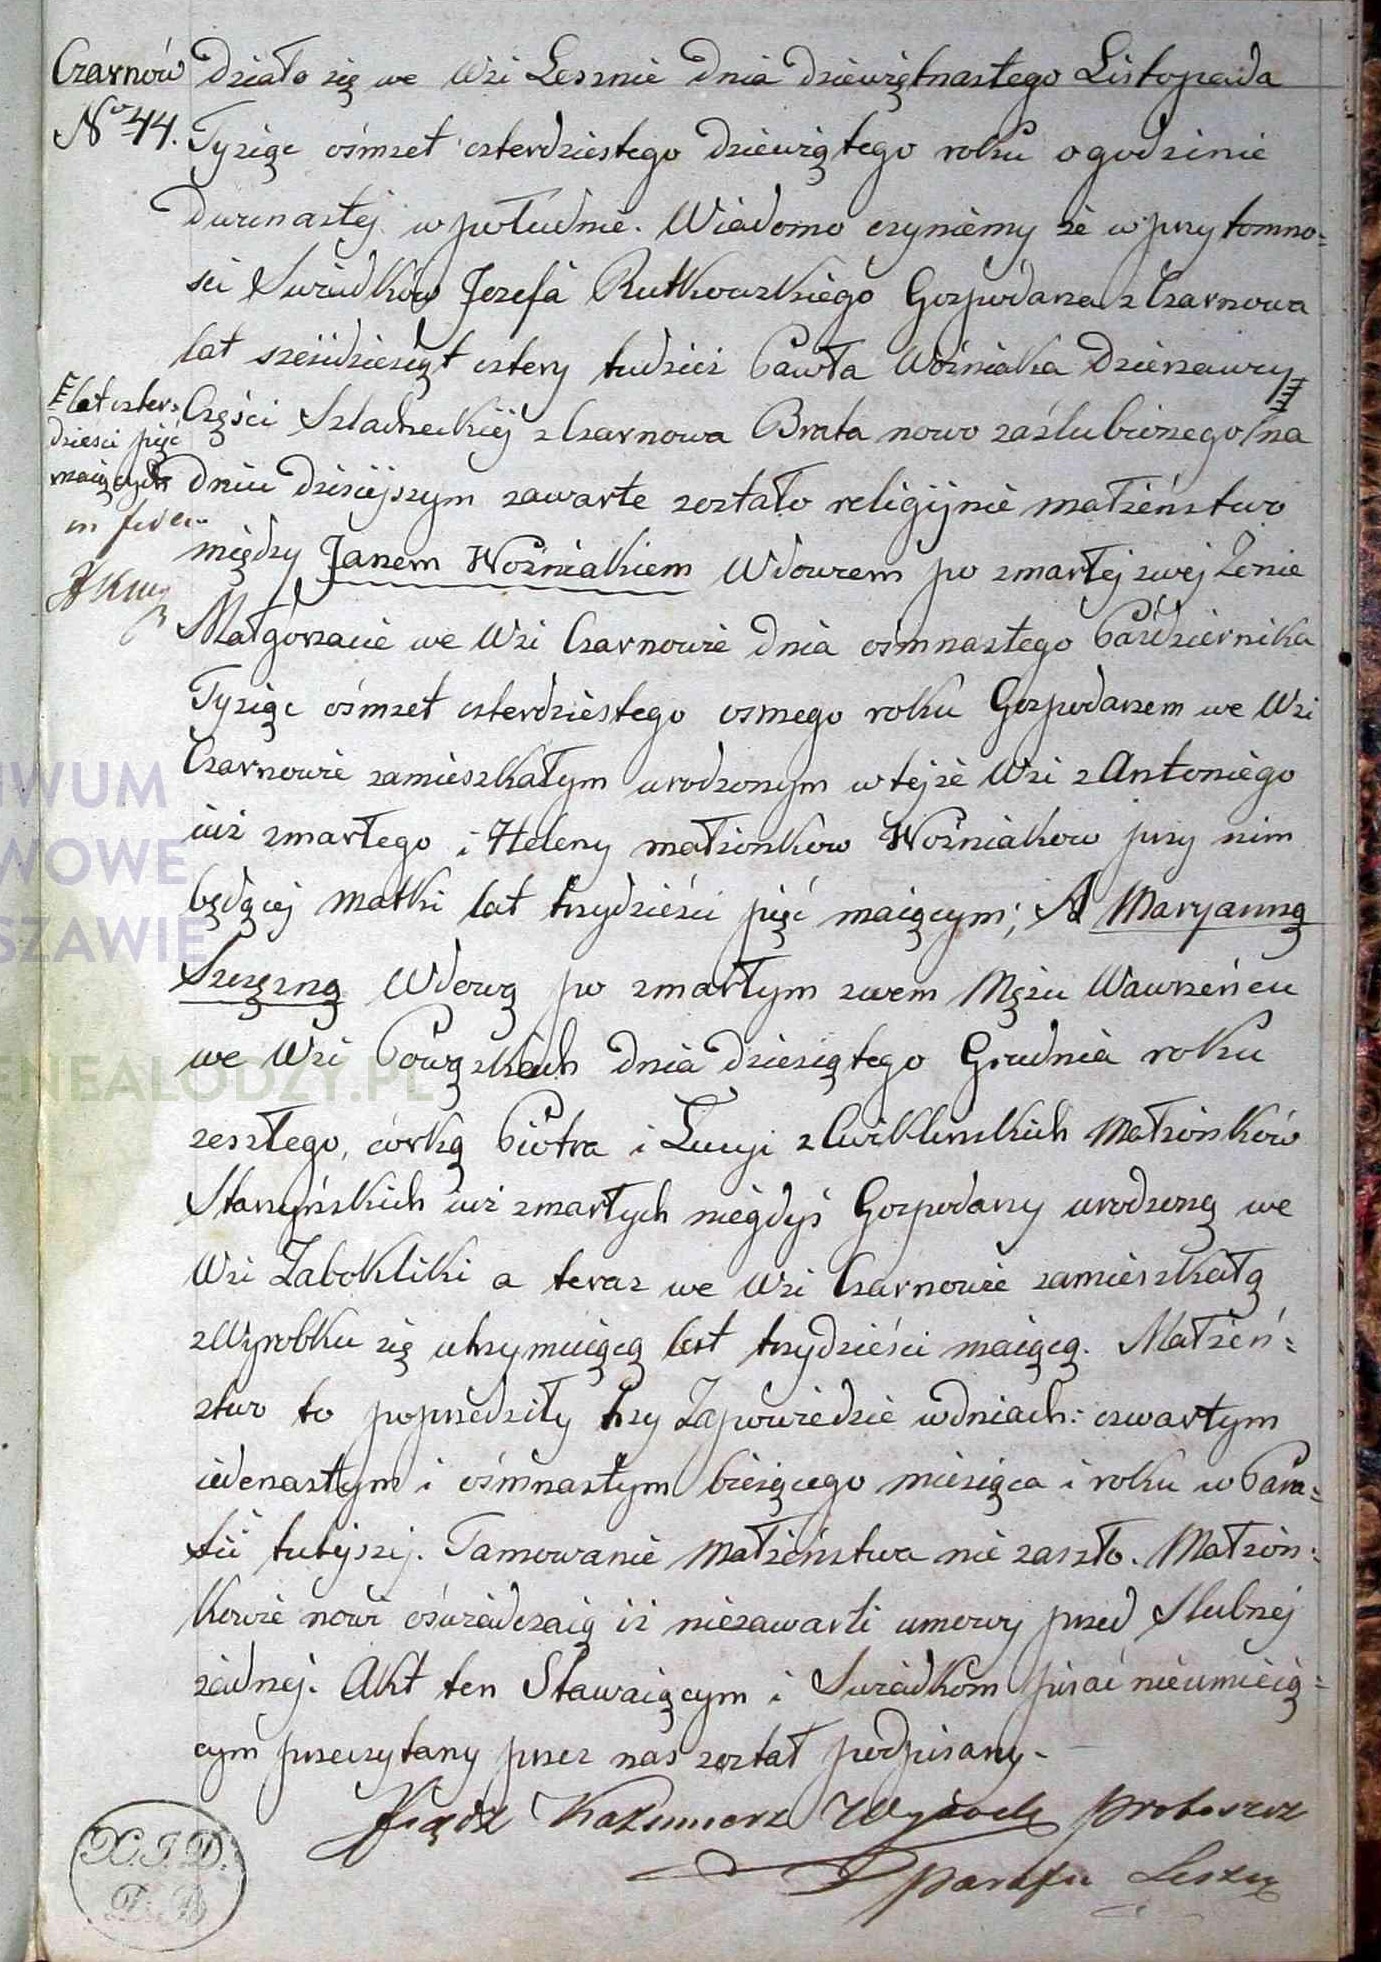 Czarnów
No 44.
działo się we Wsi Lesznie dnia dziewiętnastego Listopada
Tysiąc ośmset czterdziestego dziewiątego roku o godzinie
dwunastej w południe. Wiadomo czyniemy że w przytomno=
ści Swiadków Jozefa Rutkowskiego Gospodarza z Czarnowa
lat sześćdziesiąt cztery tudzież Pawła Woźniaka Dzierzawcy
Części Szlacheckiej z Czarnowa Brata nowo zaślubionego na
dniu dzisiejszym zawarte zostało religijnie małżeństwo
między Janem Woźniakiem Wdowcem po zmarłej swej Żonie
Małgorzacie we Wsi Czarnowie dnia ośmnastego Października
Tysiąc ośmset czterdziestego osmego roku Gospodarzem we Wsi
Czarnowie zamieszkałym urodzonym w tejże Wsi z Antoniego
iuż zmarłego i Heleny małżonków Woźniaków przy nim
będącej matki lat trzydzieści pięć maiącym; A Maryanną
Szczęsną Wdową po zmarłym swem Mężu Wawrzeńcu
we Wsi Powązkach dnia dziesiątego Grudnia roku
zeszłego, córką Piotra i Łucyi z Cwiklinskich Małżonków
Starzyńskich iuż zmarłych niegdyś Gospodarzy urodzoną we
Wsi Zabokliki a teraz we Wsi Czarnowie zamieszkałą
z Wyrobku się utrzymuiącą lat trzydzieści maiącą. Małżeń=
stwo to poprzedziły trzy Zapowiedzie w dniach: czwartym
iedenastym i ośmnastym bieżącego miesiąca i roku w Para=
fii tutejszej. Tamowanie małżeństwa nie zaszło. Małżon=
kowie nowi oświadczaią iż niezawarli umowy przed Slubnej
żadnej. Akt ten Stawaiącym i Swiadkom pisać nieumieią=
cym przeczytany przez nas został podpisany.
Ksiądz Kazimierz Wysocki Proboszcz
Parafii Leszn
lat czter=
dzieści pięć
maiących
in fidem
X. J. D.